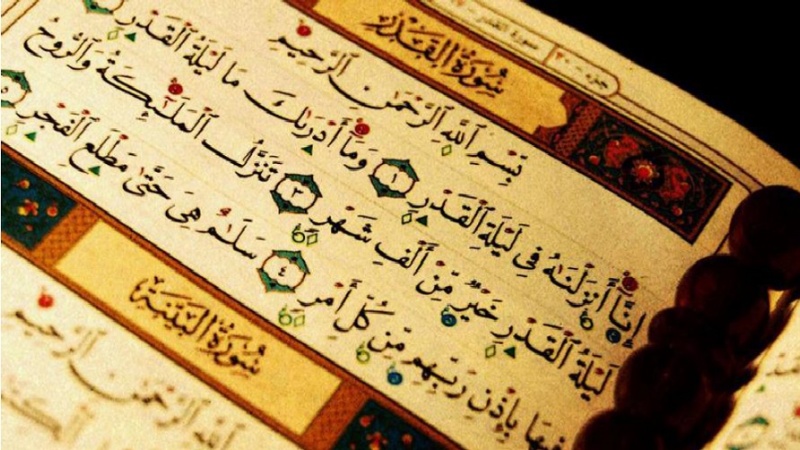 جزء ٣٠ سورة القدر
سُورَةُ القَدْرِ
بِسْمِ ٱللَّهِ ٱلرَّحْمَٰنِ ٱلرَّحِيمِ
إِنَّآ أَنزَلْنَٰهُ فِى لَيْلَةِ ٱلْقَدْرِ ١ وَمَآ أَدْرَىٰكَ مَا لَيْلَةُ ٱلْقَدْرِ
لَيْلَةُ ٱلْقَدْرِ خَيْرٌ مِّنْ أَلْفِ شَهْرٍ ٣ تَنَزَّلُ ٱلْمَلَٰٓئِكَةُ وَٱلرُّوحُ
فِيهَا بِإِذْنِ رَبِّهِم مِّن كُلِّ أَمْرٍ ٤ سَلَٰمٌ هِىَ حَتَّىٰ مَطْلَعِ ٱلْفَجْرِ ٥
سُورَةُ البَيِّنَةِ
ٱللَّهِ ٱلرَّحْمَٰنِ ٱلرَّحِيمِ